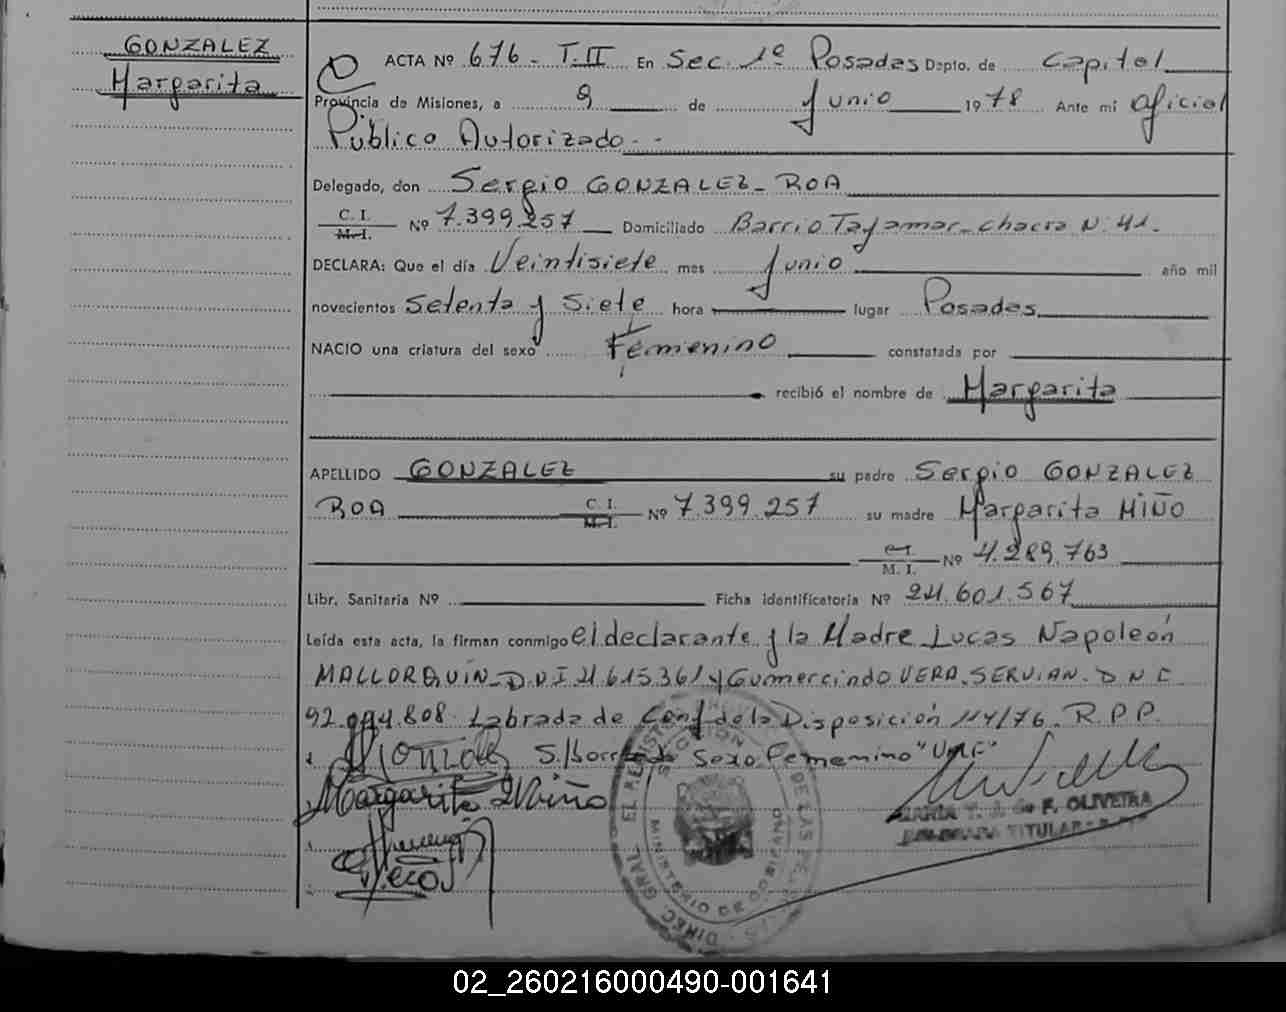 GONZALEZ
Margarita
ACTA Nº 676 - T. II En Sec. 1º Posadas Depto. de Capital
Provincia de Misiones, a 9 de Junio 1978 Ante mi Oficial
Público Autorizado - -
Delegado, don Sergio GONZALEZ - ROA
C. I.
M. I. Nº 7.399.257 Domiciliado Barrio Tajamar - chacra N. 41.
DECLARA: Que el día Veintisiete mes Junio año mil
novecientos Setenta y Siete hora lugar Posadas
NACIO una criatura del sexo Femenino constatada por
recibió el nombre de Margarita
APELLIDO GONZALEZ su padre Sergio GONZALEZ
ROA C. I.
M. I. Nº 7.399.257 su madre Margarita MIÑO
M. I. Nº 4.289.763
Libr. Sanitaria Nº Ficha identificatoria Nº 24.601.567
Leída esta acta, la firman conmigo el declarante y la Madre Lucas Napoleón
MALLORQUÍN - D.N.I. 4.615.361 y Gumercindo VERA. SERVIAN. D N C
92.044.808. Labrada de Conf de la Disposición 114/76. R. P. P.
S./Borrado Sexo Femenino
Margarita Miño
DIREC. GRAL. EL REGISTRO DE LAS
MINISTERIO DE GOBIERNO
MARIA T. J. de F. OLIVEIRA
DELEGADA TITULAR
02_260216000490-001641